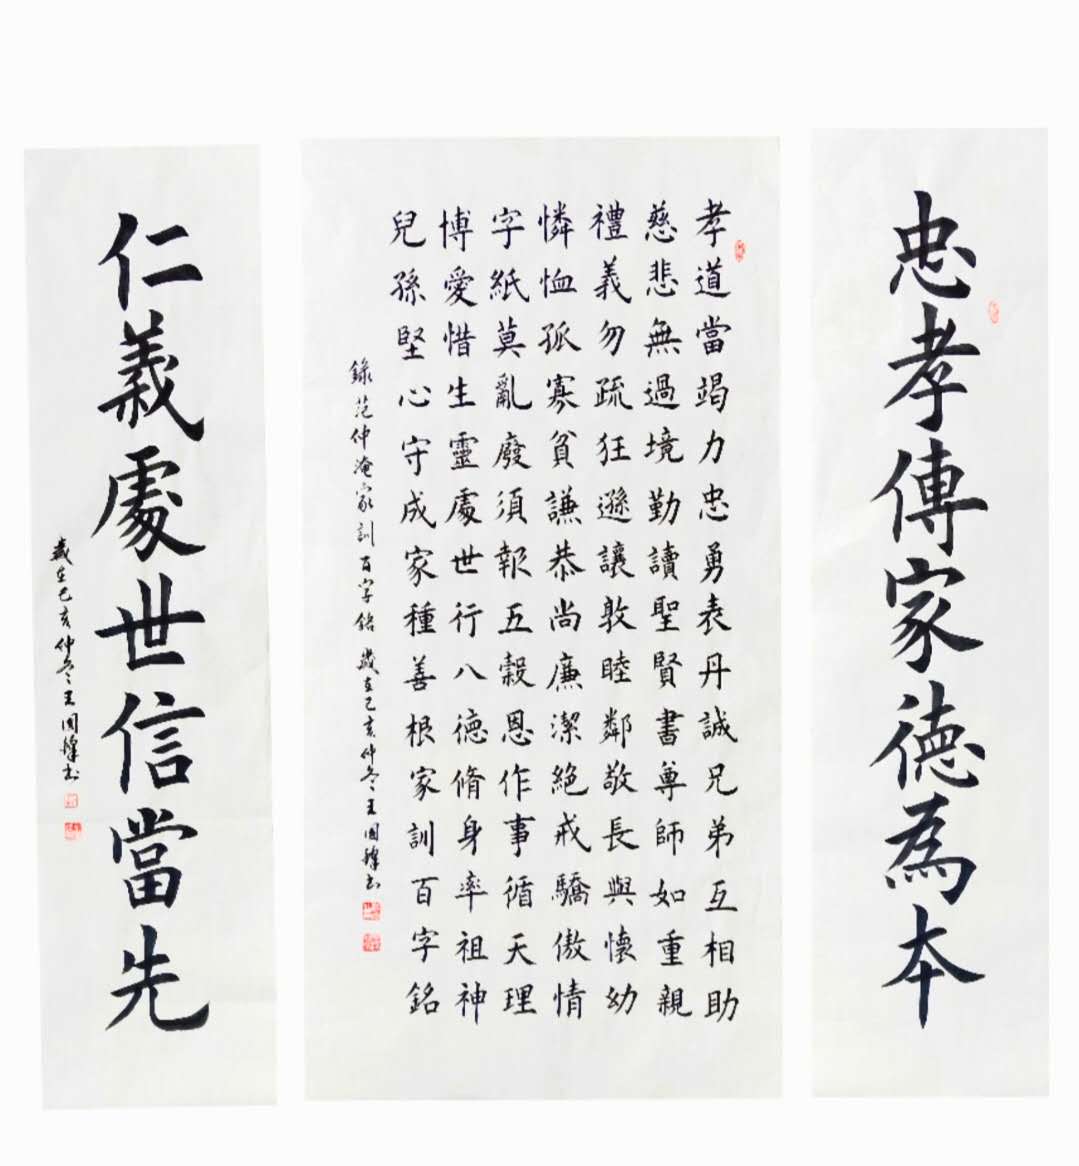 忠孝傳家德為本
孝道當竭力忠勇表丹誠兄弟互相助
慈悲無過境勤讀聖賢書尊師如重親
禮義勿疏狂遜讓敦睦鄰敬長與懷幼
憐恤孤寡貧謙恭尚廉潔絕戒驕傲情
字紙莫亂廢須報五穀恩作事循天理
博愛惜生靈處世行八德脩身率祖神
兒孫堅心守成家種善根家訓百字銘
錄范仲淹家訓百字銘 歲在己亥仲冬王国書
仁義處世信當先
歲在己亥仲冬王国書